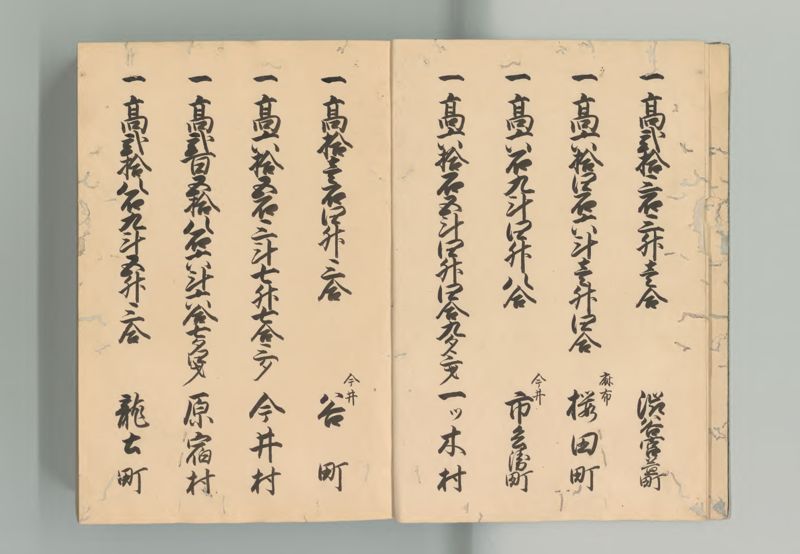 一 髙弐拾三石三升壱合 渋谷宮益町
一 髙六拾四石六斗壱升四合 麻布 桜田町
一 髙六石九斗四升八合 今井 市兵衛町
一 髙六拾石五斗四升四合九夕三才 一ッ木村
一 髙拾壱石四升三合 今井 谷町
一 髙六拾五石三斗七升七合三夕 今井村
一 髙弐百五拾八石六斗六合七夕四才 原宿村
一 髙弐拾八石九斗五升三合 龍土町